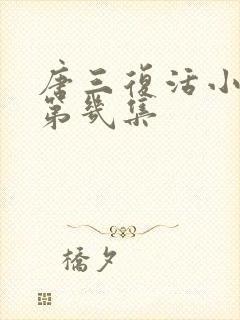 唐三復活小
第幾集
橋夕